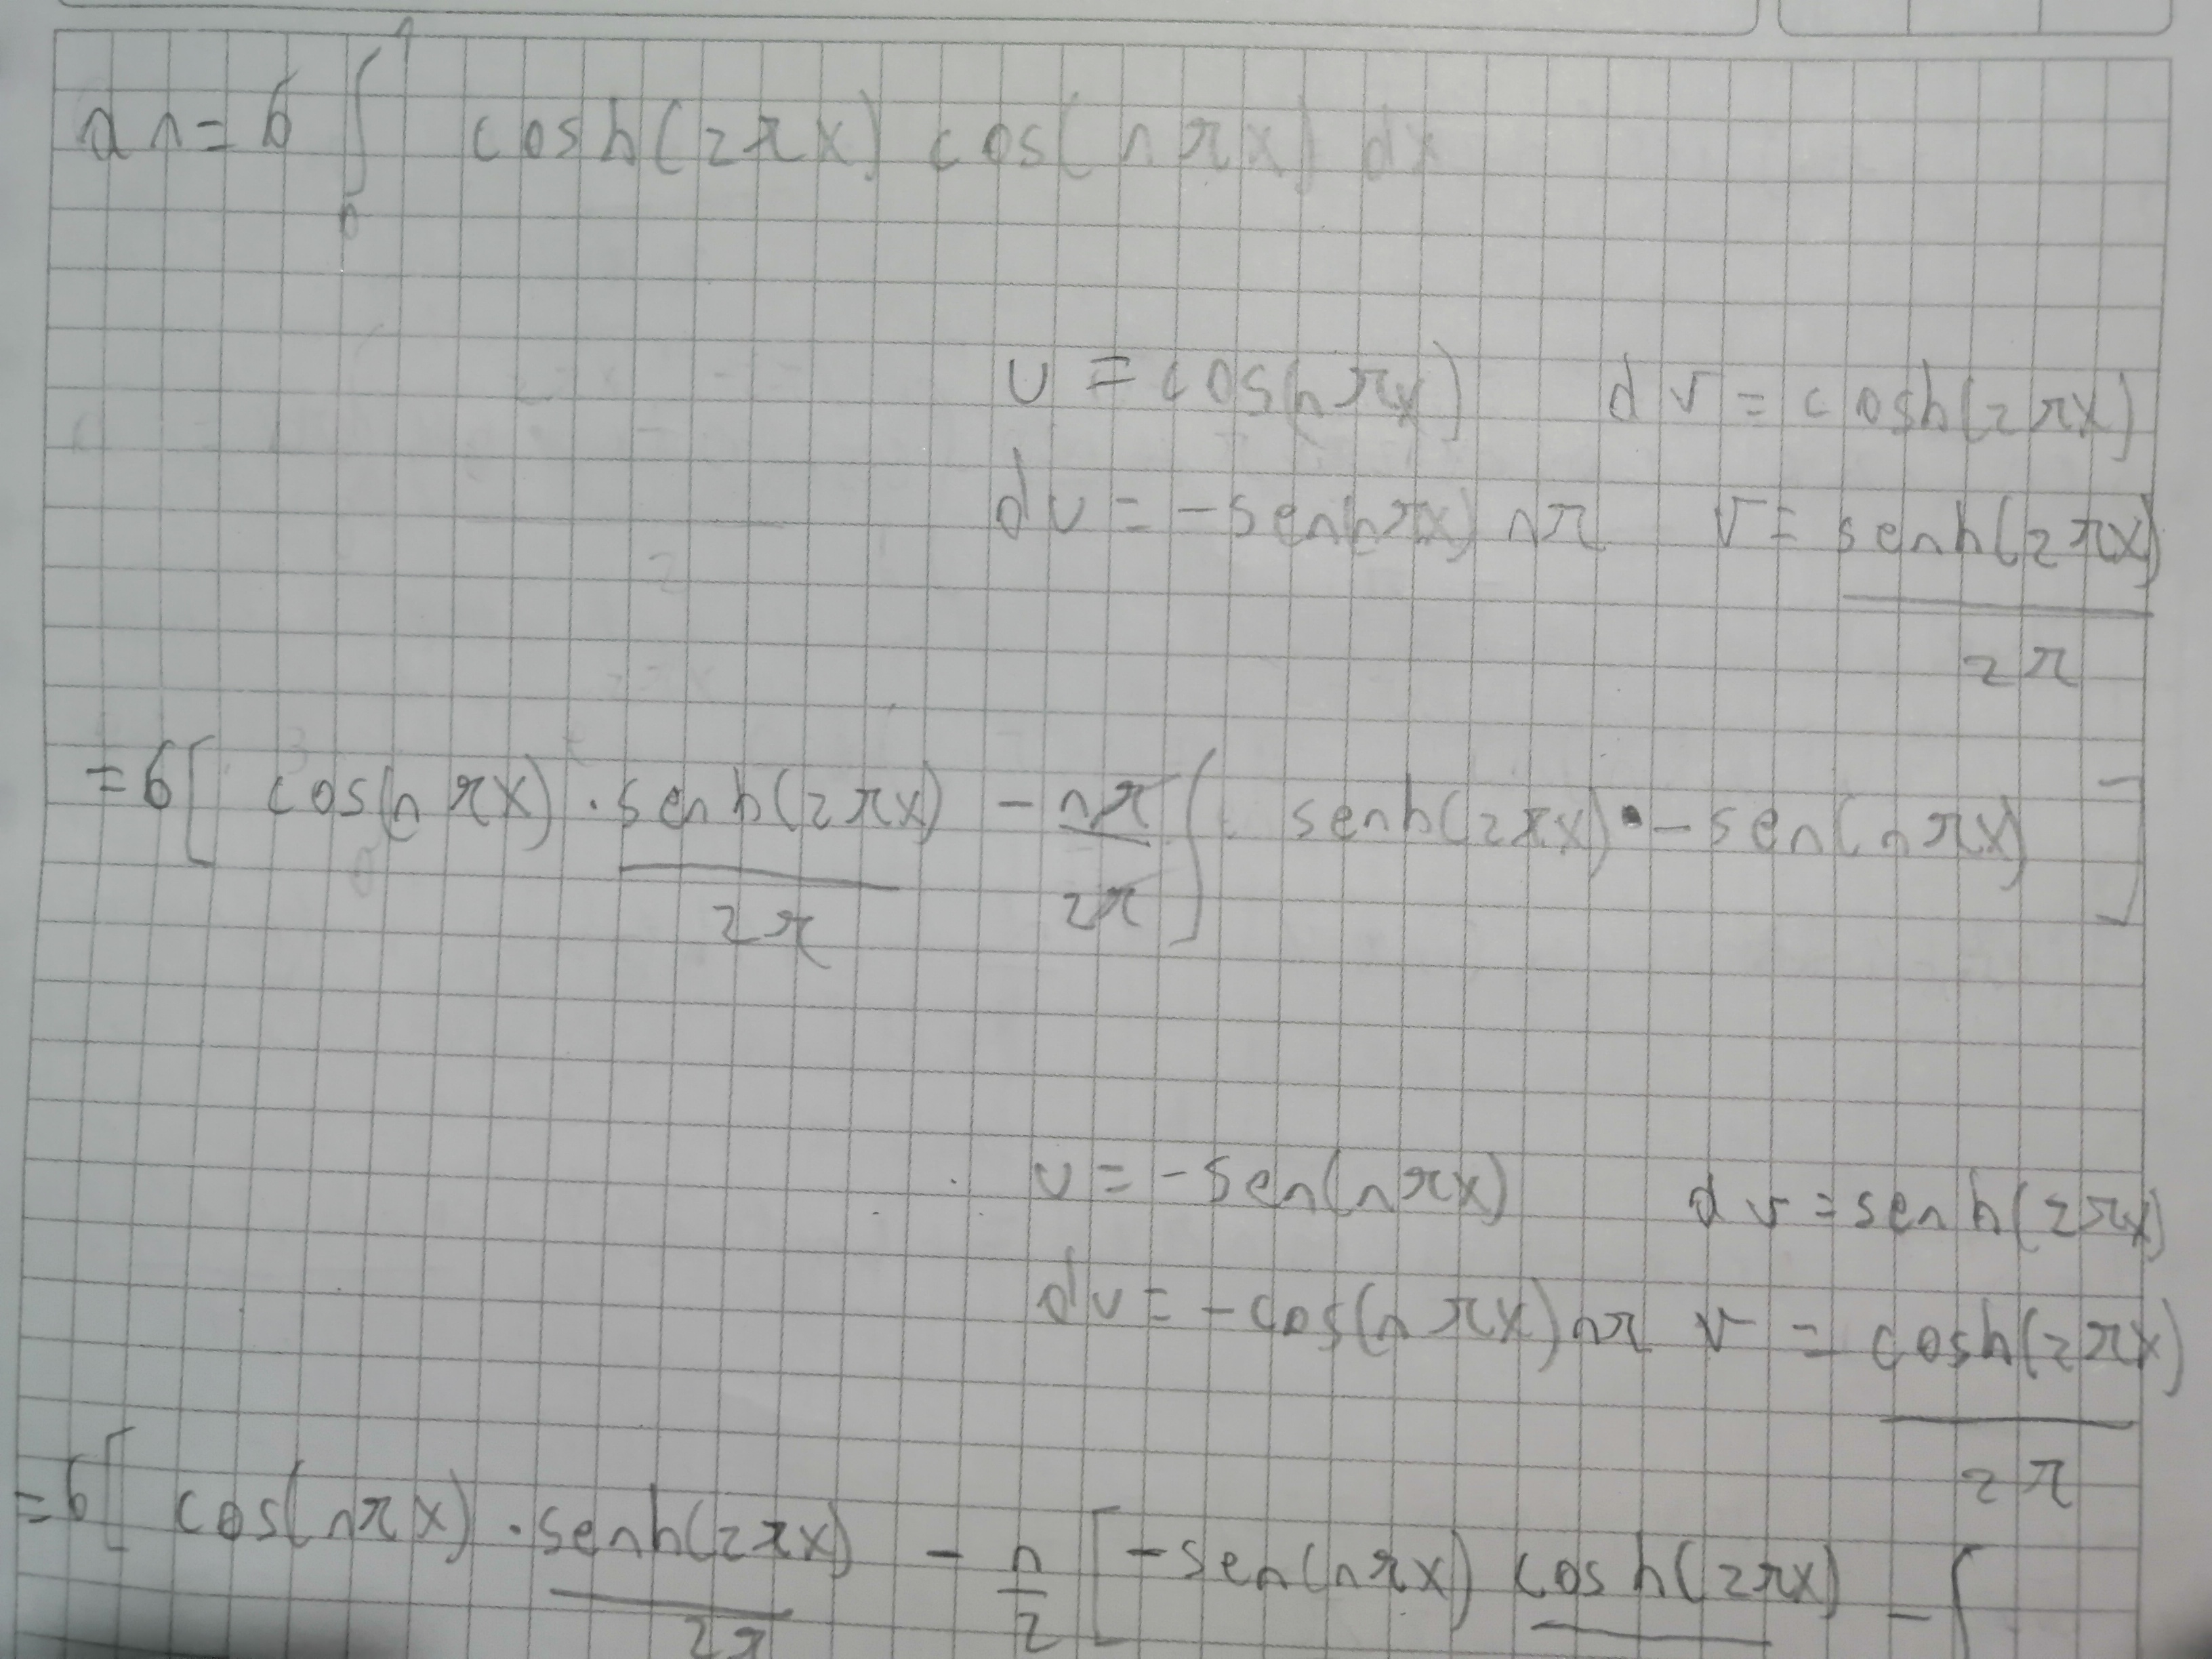 an = 6 ∫₀¹ cosh(2πx) cos(nπx) dx
u = cos(nπx) dv = cosh(2πx)
du = -sen(nπx) nπ v = senh(2πx)
2π
= 6[ cos(nπx) · senh(2πx) - nπ ∫ senh(2πx) · - sen(nπx) ]
2π 2π
u = -sen(nπx) dv = senh(2πx)
du = -cos(nπx) nπ v = cosh(2πx)
2π
= 6[ cos(nπx) · senh(2πx) - n [ -sen(nπx) cosh(2πx) - ∫
2π 2